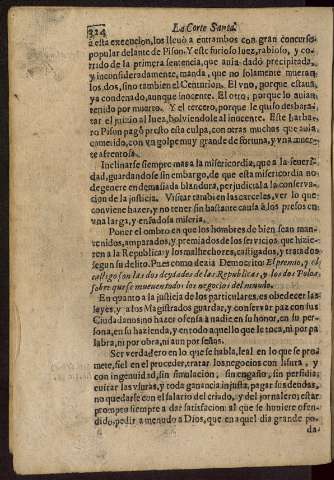 324
La Corte Santa
a esta execucion, los lleuò a entrambos con gran concurso
popular delante de Pison. Y este furioso Iuez, rabioso, y co
rrido de la primera sentencia, que auia dadó precipitada,
y inconsideradamente, manda, que no solamente mueran
los dos, sino tambien el Centurion. El vno, porque estaua
ya condenado, aunque inocente. El otro, porque lo auian
tenido por muerto. Y el tercero, porque le quiso desbara-
tar el juizio al Iuez, boluiendole al inocente. Este barba-
ro Pison pagò presto esta culpa, con otras muchas que auia
cometido, con vn golpe muy grande de fortuna, y vna muer
te afrentosa.
Inclinarse siempre mas a la misericordia, que a la seueri-
dad, guardandose sin embargo, de que esta misericordia no
degenere en demasiada blandura, perjudicial a la conserua-
cion de la justicia. Visitar tambien las carceles, ver lo que
conviene hazer, y no tener sin bastante causa à los presos en
vna larga, y enfadosa miseria.
Poner el ombro en que los hombres de bien sean man-
tenidos, amparados, y premiados de los seruicios que hizie-
ren a la Republica: y los malhechores, castigados, y tratados
segun su delito. Pues como dezia Democrito: El premio, y el
castigo son las dos deydades de las Republicas, y los dos Polos
sobre que se mueuen todos los negocios del mundo.
En quanto a la justicia de los particulares, es obedecer las
leyes, y a los Magistrados guardar, y conseruar paz con sus
Ciudadanos; no hazer ofensa à nadie en su honor, en su per-
sona, en su hazienda, y en todo aquello que le toca, ni por pa
labra, ni por obra, ni aun por señas.
Ser verdadero en lo que se habla, leal en lo que se pro-
mete, fiel en el proceder, tratar los negocios con lisura, y
con ingenuidad, sin simulacion, sin engaño, sin perfidia;
euitar las vsuras, y toda ganancia injusta, pagar sus deudas,
no quedarse con el salario del criado, y del jornalero; estar
prompto siempre a dar satisfacion al que se huuiere ofen-
dido, pedir a menudo a Dios, que en aquel dia grande po
da-